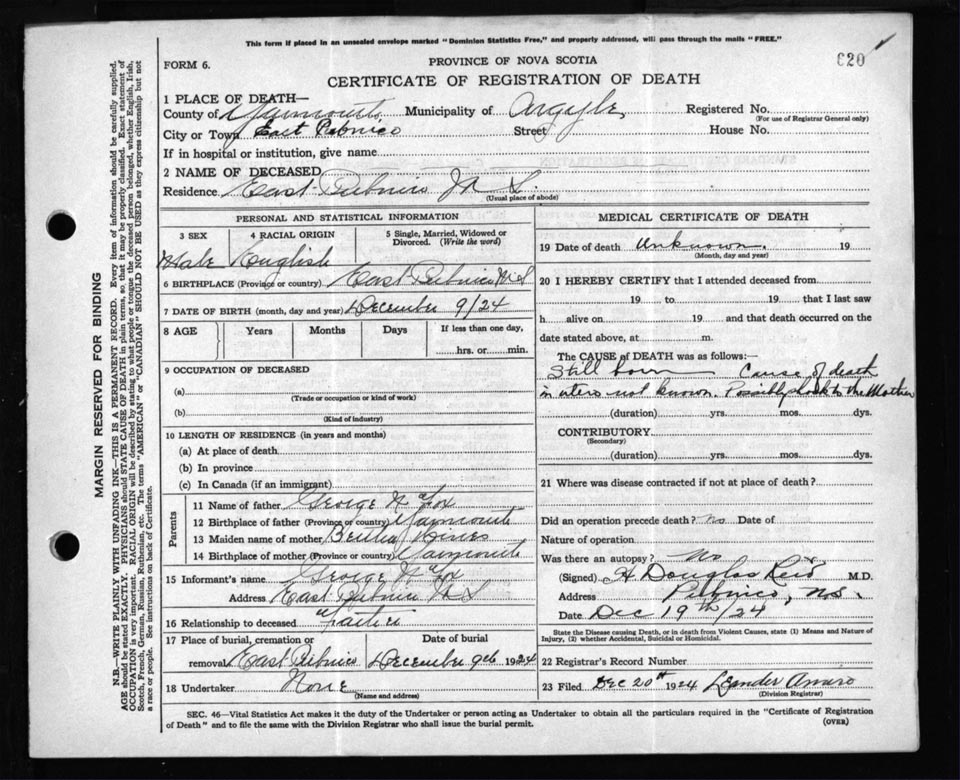 This form if placed in an unsealed envelope marked "Dominion Statistics Free," and properly addressed, will pass through the mails "FREE."
FORM 6.
PROVINCE OF NOVA SCOTIA
620
CERTIFICATE OF REGISTRATION OF DEATH
1 PLACE OF DEATH—
County of Yarmouth Municipality of Argyle Registered No.
(For use of Registrar General only)
City or Town East Pubnico Street House No.
If in hospital or institution, give name
2 NAME OF DECEASED
Residence East Pubnico N S.
(Usual place of abode)
PERSONAL AND STATISTICAL INFORMATION
3 SEX 4 RACIAL ORIGIN 5 Single, Married, Widowed or Divorced. (Write the word)
Male English
6 BIRTHPLACE (Province or country) East Pubnico N S
7 DATE OF BIRTH (month, day and year) December 9/24
8 AGE Years Months Days If less than one day,
hrs. or min.
9 OCCUPATION OF DECEASED
(a)
(Trade or occupation or kind of work)
(b)
(Kind of industry)
10 LENGTH OF RESIDENCE (in years and months)
(a) At place of death
(b) In province
(c) In Canada (if an immigrant)
Parents
11 Name of father George N Fox
12 Birthplace of father (Province or country) Yarmouth
13 Maiden name of mother Hines
14 Birthplace of mother (Province or country) Yarmouth
15 Informant's name George N Fox
Address East Pubnico N S
16 Relationship to deceased father
17 Place of burial, cremation or Date of burial
removal East Pubnico December 9th 1924
18 Undertaker None
(Name and address)
MEDICAL CERTIFICATE OF DEATH
19 Date of death Unknown. 19
(Month, day and year)
20 I HEREBY CERTIFY that I attended deceased from
19 to 19 that I last saw
h alive on 19 and that death occurred on the
date stated above, at m.
The CAUSE of DEATH was as follows:
Still born Cause of death
in utero not known. Possibly shock to the Mother
(duration) yrs. mos. dys.
CONTRIBUTORY
(Secondary)
(duration) yrs. mos. dys.
21 Where was disease contracted if not at place of death?
Did an operation precede death? no Date of
Nature of operation
Was there an autopsy? No
(Signed) H Douglas Reid M.D.
Address Pubnico, N.S.
Date Dec 19th/24
State the Disease causing Death, or in death from Violent Causes, state (1) Means and Nature of
Injury, (2) whether Accidental, Suicidal or Homicidal.
22 Registrar's Record Number
23 Filed Dec 20th 1924 Leander Amiro
(Division Registrar)
SEC. 46—Vital Statistics Act makes it the duty of the Undertaker or person acting as Undertaker to obtain all the particulars required in the "Certificate of Registration
of Death" and to file the same with the Division Registrar who shall issue the burial permit.
(OVER)
MARGIN RESERVED FOR BINDING
N.B.—WRITE PLAINLY WITH UNFADING INK—THIS IS A PERMANENT RECORD. Every item of information should be carefully supplied.
AGE should be stated EXACTLY. PHYSICIANS should STATE CAUSE OF DEATH in plain terms, so that it may be properly classified. Exact statement of
OCCUPATION is very important. RACIAL ORIGIN will be described by stating to what people or tongue the deceased person belonged, whether English, Irish,
Scotch, French, German, Russian, Ruthenian, etc. The terms "AMERICAN" or "CANADIAN" SHOULD NOT BE USED as they express citizenship but not
a race or people. See instructions on back of Certificate.